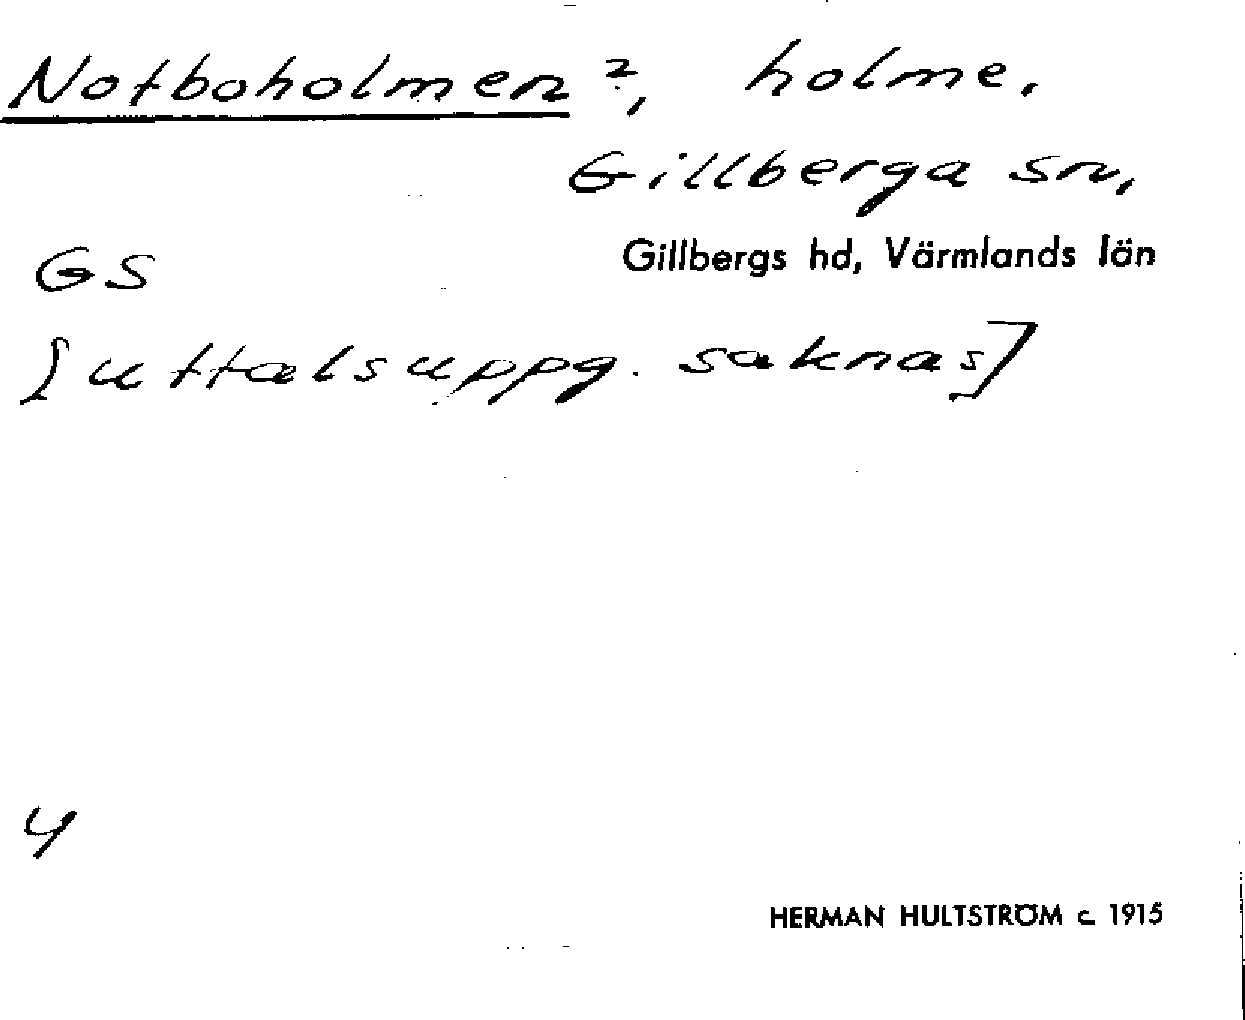 Notboholmen ?, holme.
Gillberga sn,
Gillbergs hd, Värmlands län
GS
[uttalsuppg. saknas]
4
HERMAN HULTSTRÖM c. 1915